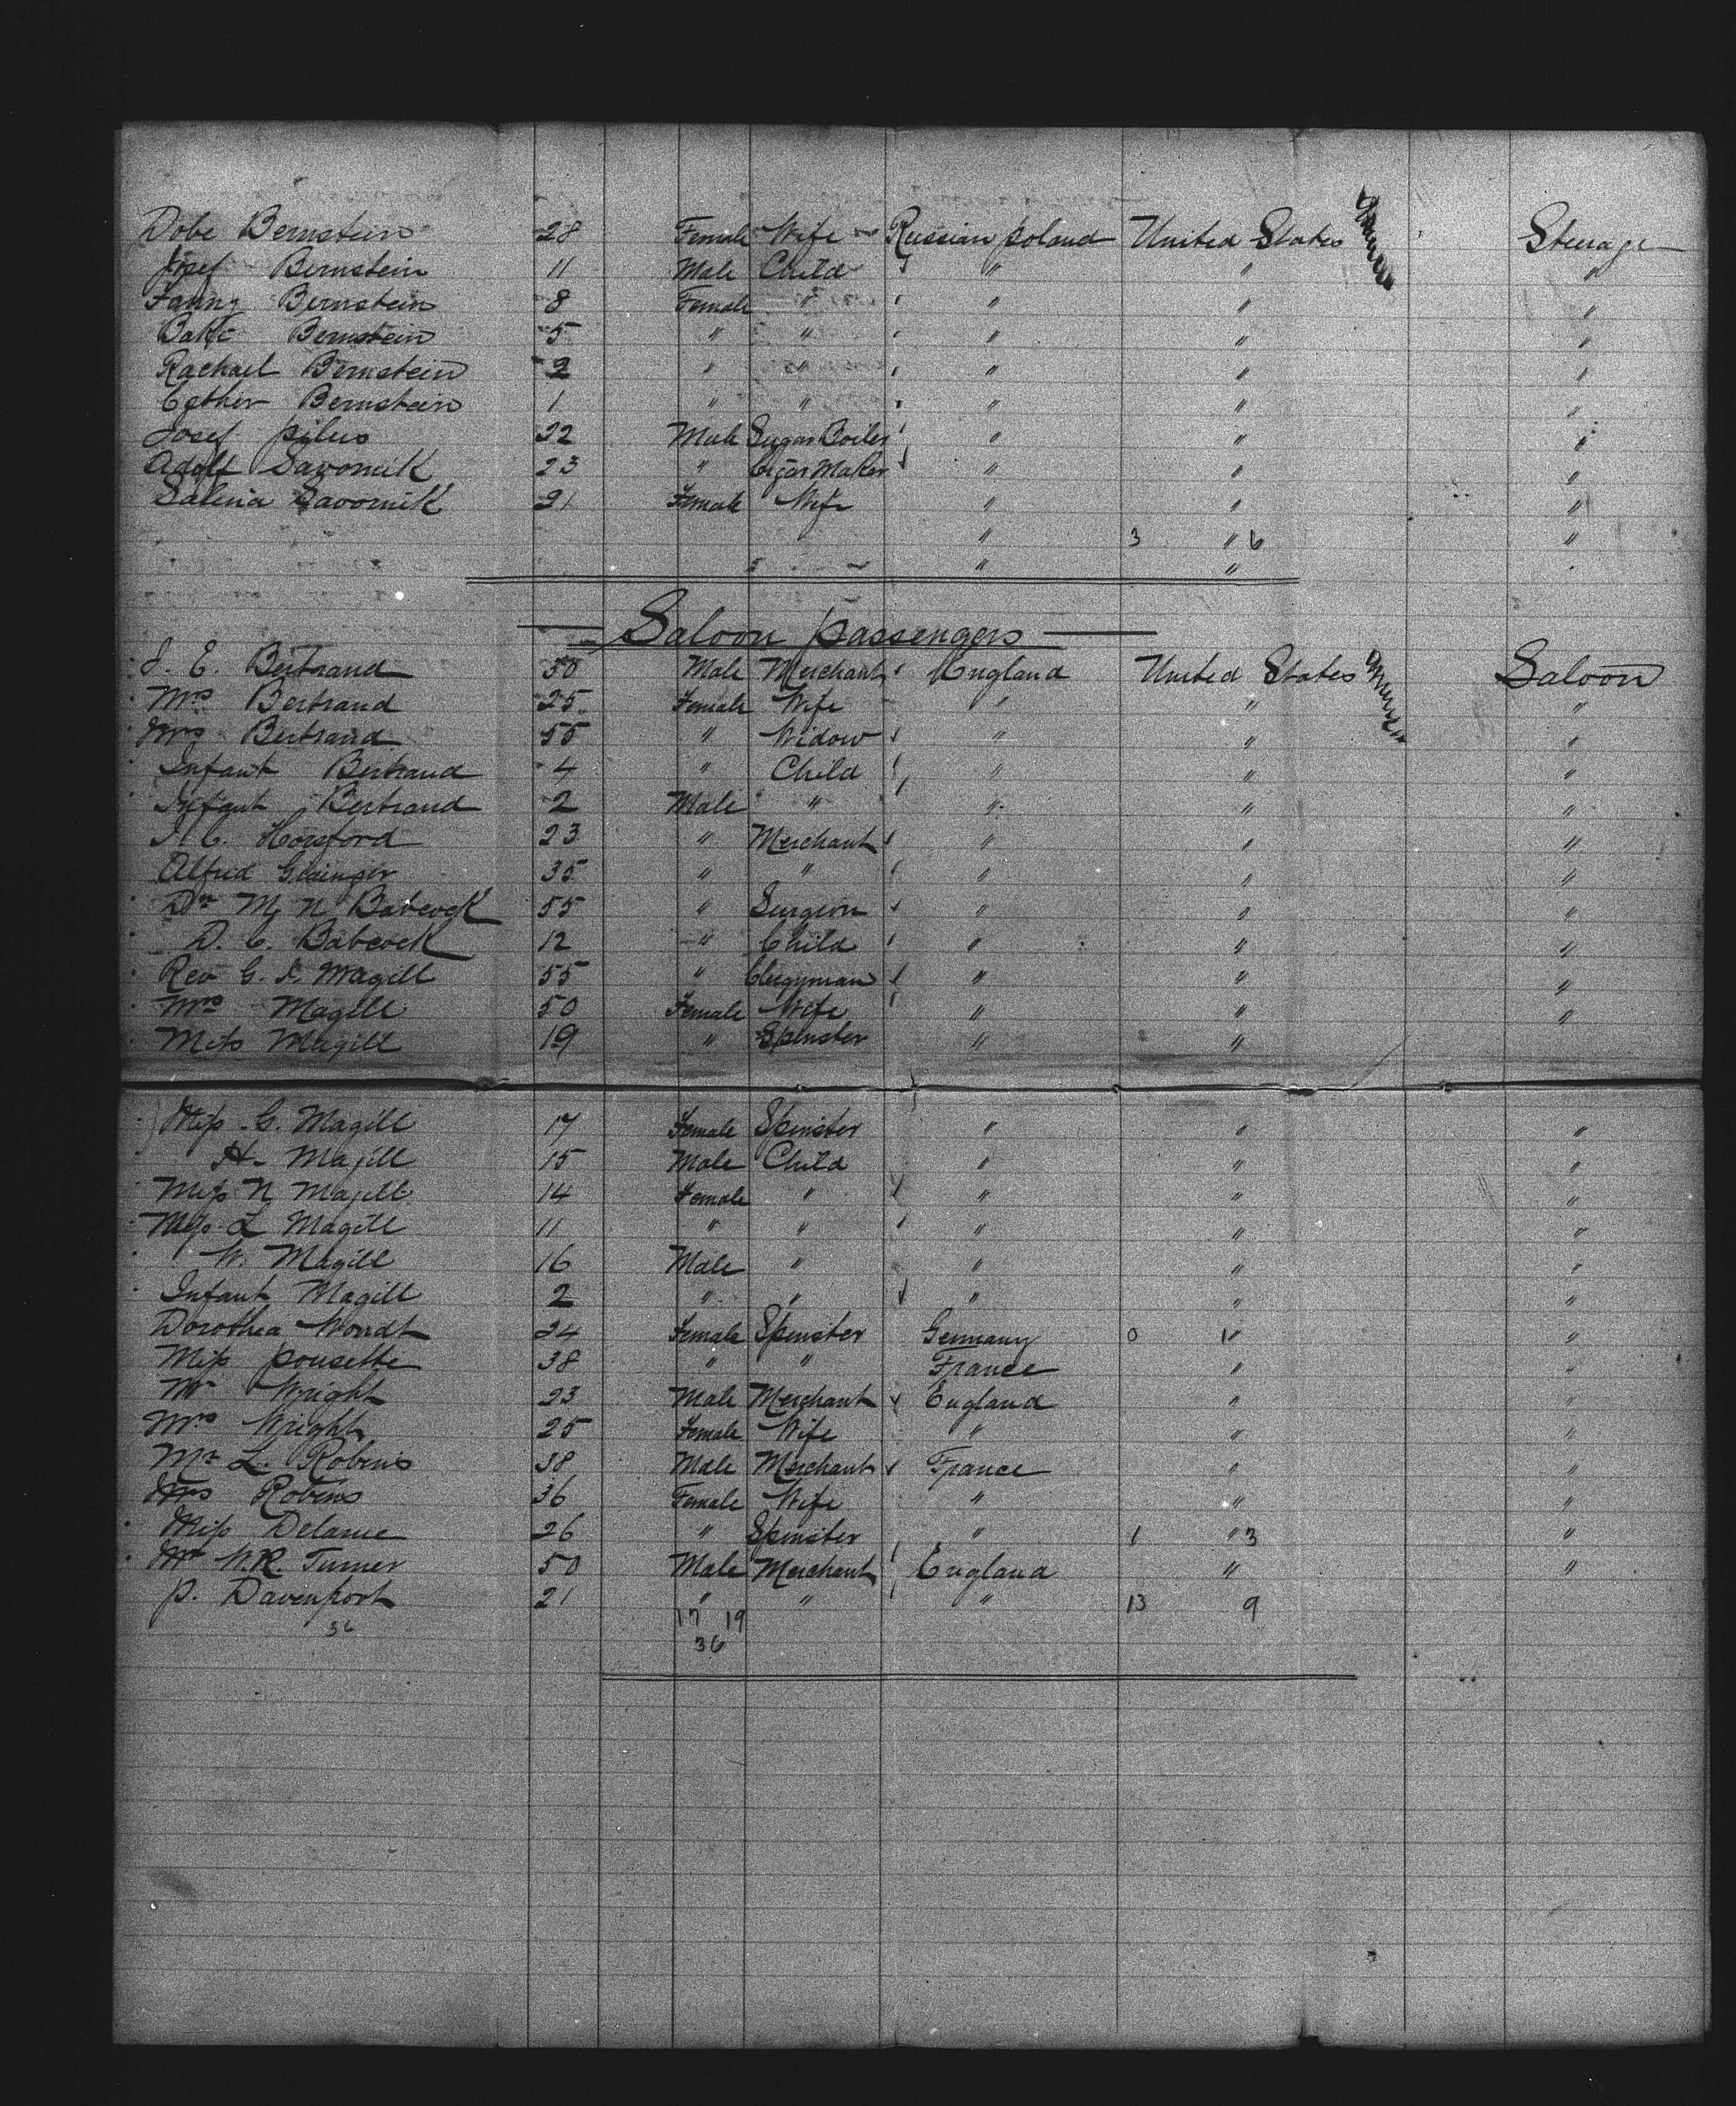 Dobe Bernstein 28 Female Wife Russian poland United States Steerage
Josef Bernstein 11 Male Child " " "
Fanny Bernstein 8 Female " " " "
Bernstein 5 " " " " "
Rachael Bernstein 2 " " " " "
Esther Bernstein 1 " " " " "
Josef pilus 22 Male Sugar Boiler " " "
Adolf Savornik 23 " Cigar Maker " " "
Salina Savornik 21 Female Wife " " "
" 3 " 6 "
" "
Saloon passengers
J. E. Bertrand 30 Male Merchant England United States Saloon
Mrs Bertrand 25 Female Wife " " "
Mrs Bertrand 55 " Widow " " "
Infant Bertrand 4 " Child " " "
Infant Bertrand 2 Male " " " "
Horsford 23 " Merchant " " "
Alfred Grainger 35 " " " " "
Dr M. N. Babcock 55 " Surgeon " " "
D. C. Babcock 12 " Child " " "
Rev G. Magill 55 " Clergyman " " "
Mrs Magill 50 Female Wife " " "
Miss Magill 19 " Spinster " "
Miss G. Magill 17 Female Spinster " " "
H. Magill 15 Male Child " " "
Miss N Magill 14 Female " " " "
Miss L Magill 11 " " " " "
W. Magill 16 Male " " " "
Infant Magill 2 " " " " "
Dorothea Wondt 24 Female Spinster Germany 0 1" "
Miss pousette 38 " " France " "
Mr Wright 23 Male Merchant England " "
Mrs Wright 25 Female Wife " " "
Mr L. Robins 38 Male Merchant France " "
Mrs Robins 36 Female Wife " " "
Miss Delarue 26 " Spinster " 1 " 3 "
Mr W.R. Turner 50 Male Merchant England " "
p. Davenport 21 " " " 13 9
36 17 19
36